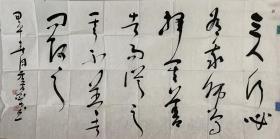 三人行必
有我师焉
择其善
者而从之
其不善者
而改之